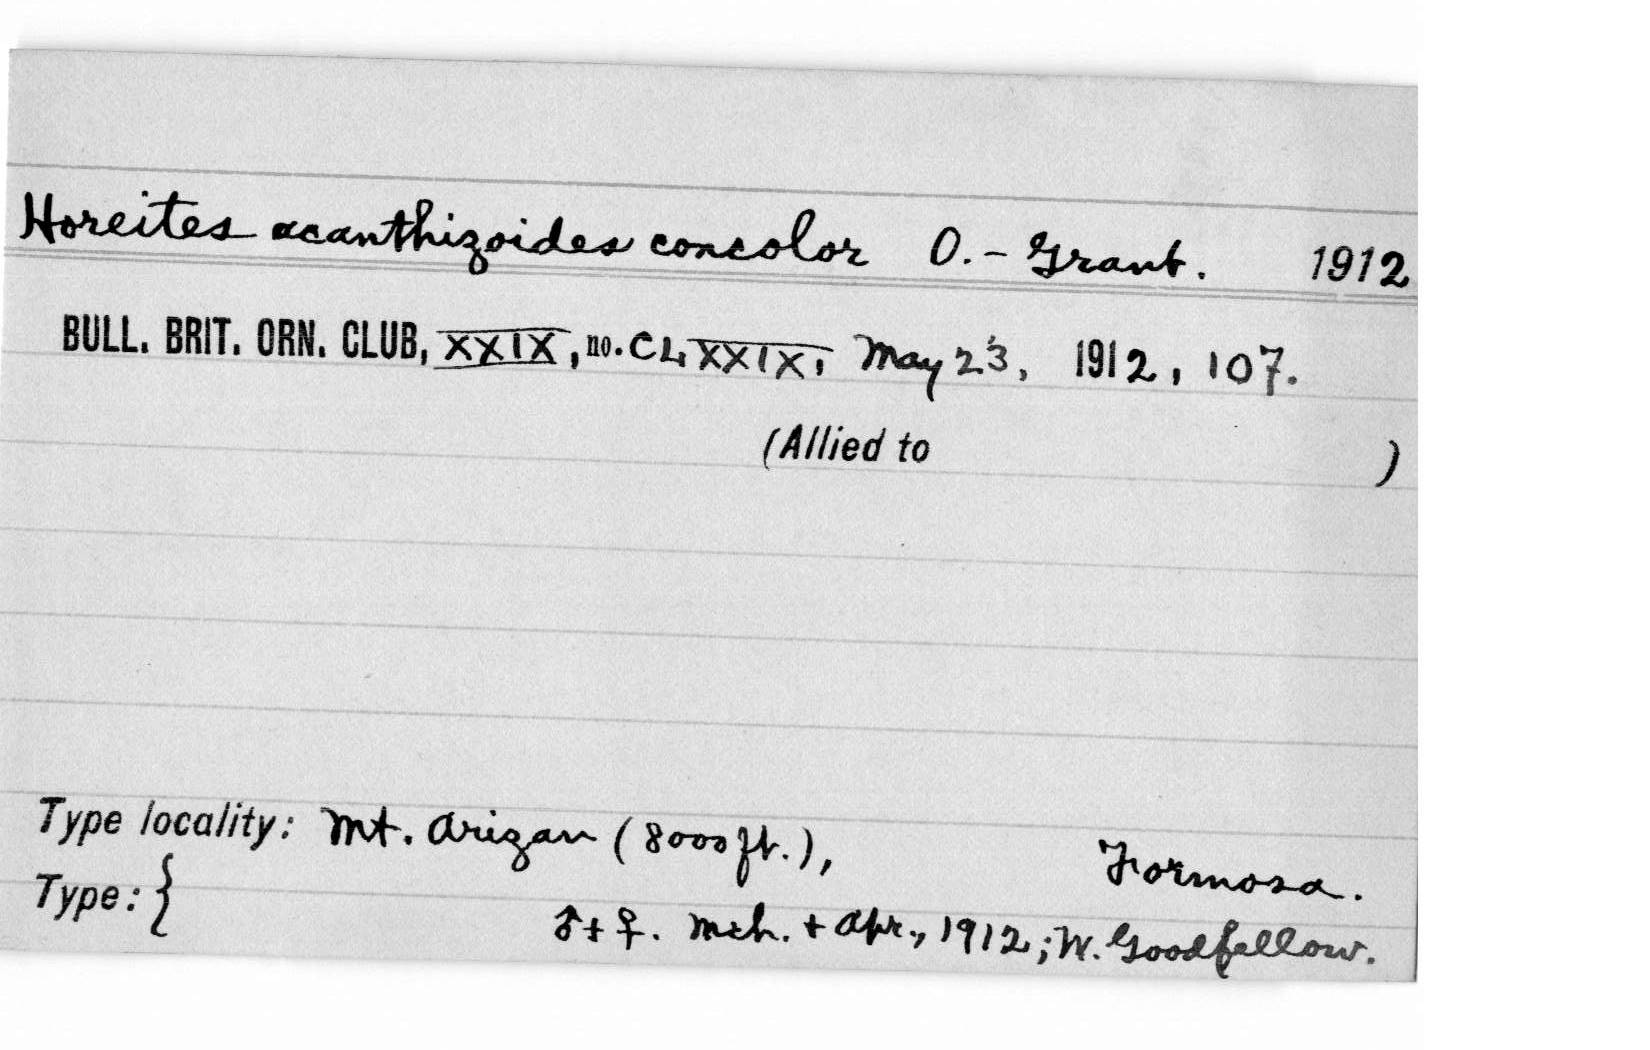 Horeites acanthizoides concolor O.-Grant. 1912
BULL. BRIT. ORN. CLUB, XXIX, no. CLXXIX, May 23, 1912, 107.
(Allied to )
Type locality: Mt. Arizan (8000 ft.), Formosa.
Type: { ♂ + ♀. Mch. + Apr., 1912; W. Goodfellow.